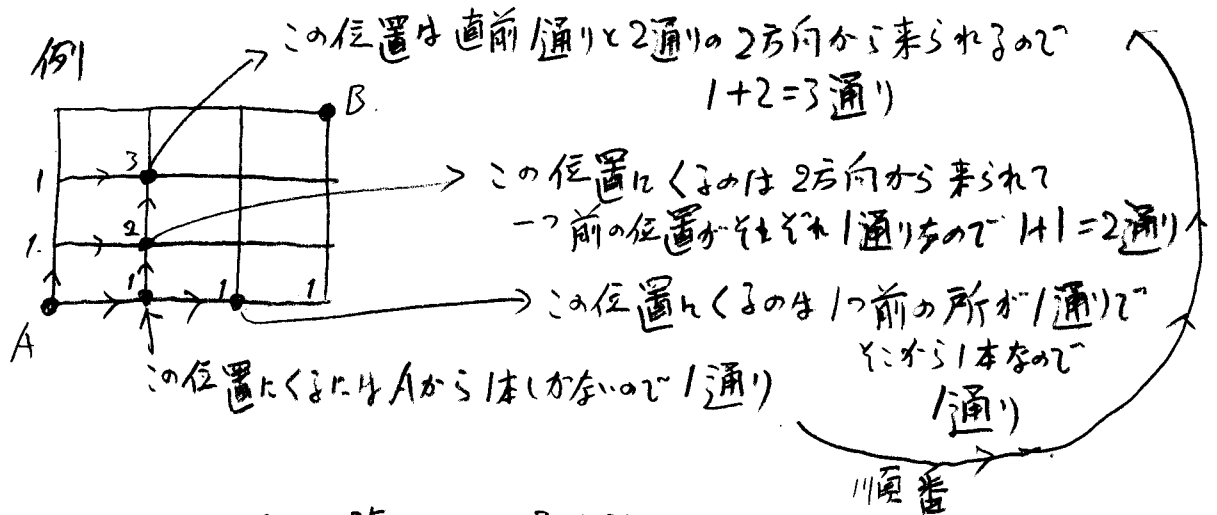 例
この位置は直前1通りと2通りの2方向から来られるので
1+2=3通り
B.
1 3
この位置にくるのは2方向から来られて
一つ前の位置がそれぞれ1通りなので 1+1=2通り
1. 2
1 1 1
この位置にくるのは1つ前の所が1通りで
そこから1本なので
1通り
A
この位置にくるにはAから1本しかないので1通り
順番